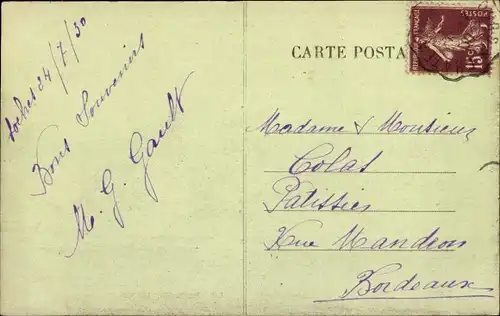 Loches 24/7/30
Bons Souvenirs
M. G. Gault
CARTE POSTA
POSTES
REPUBLIQUE FRANÇAISE
15c
Madame & Monsieur
Colas
Patissier
Rue Mandron
Bordeaux